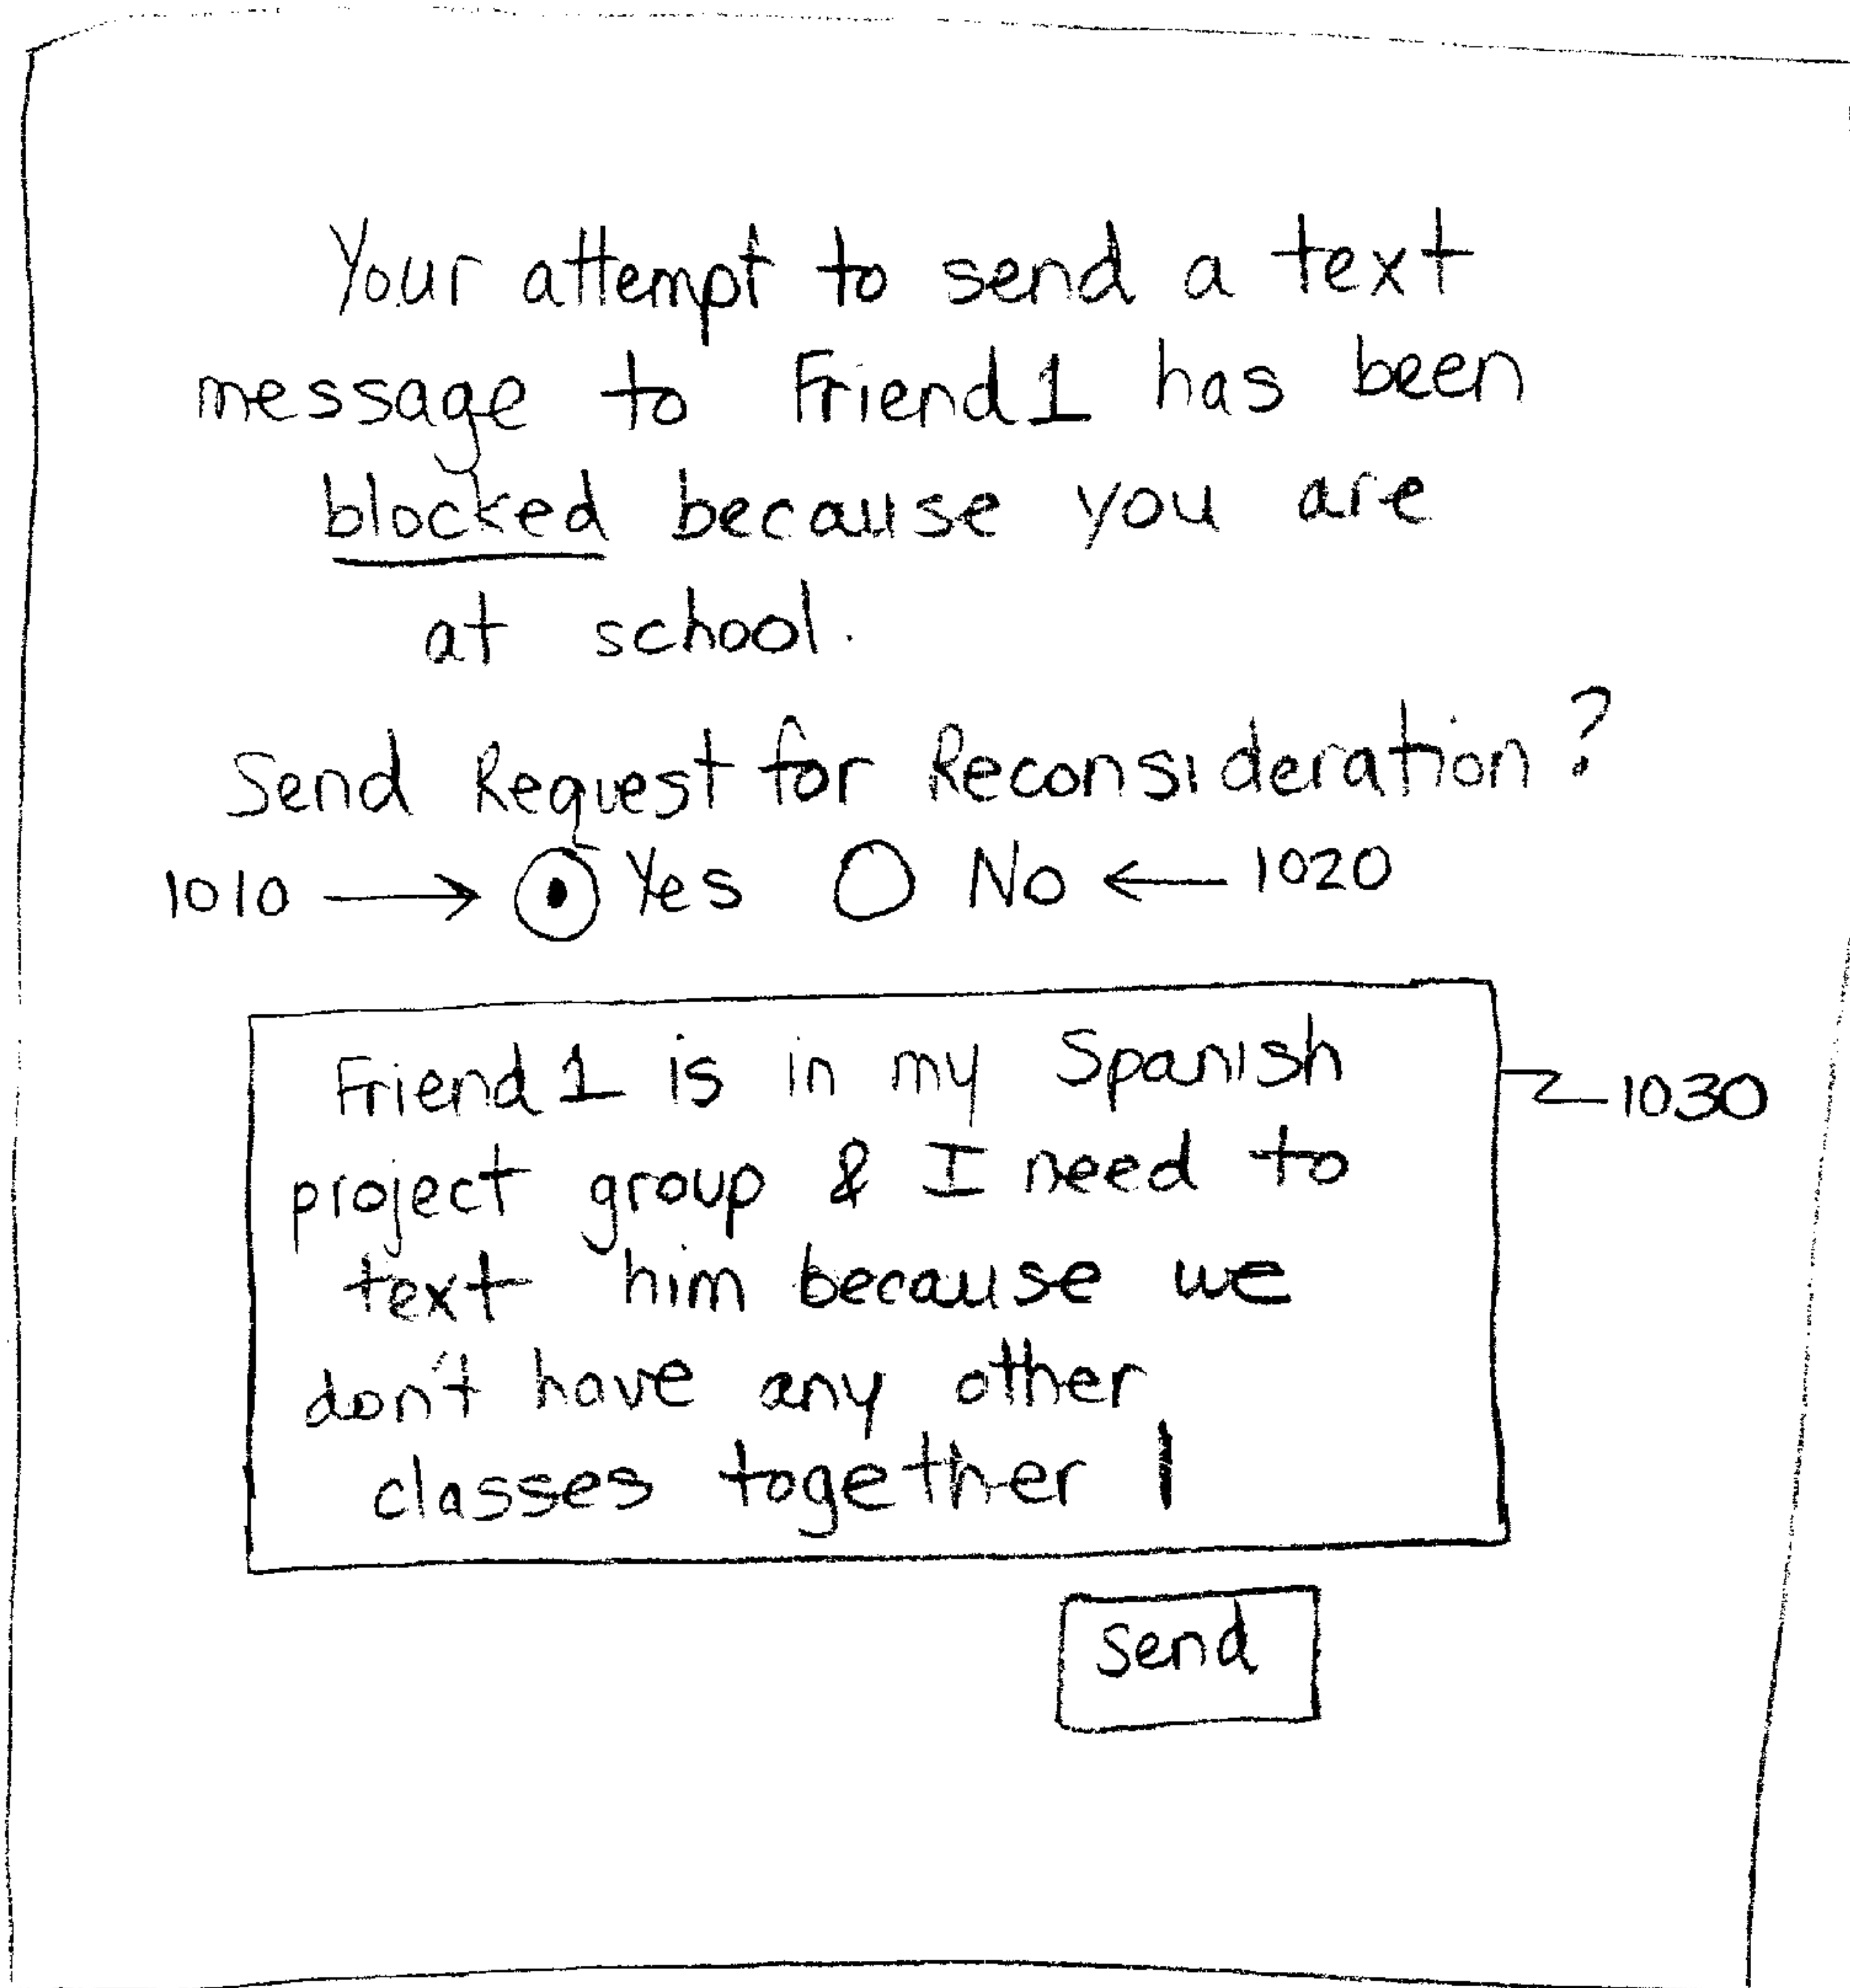 Your attempt to send a text
message to Friend1 has been
blocked because you are
at school.
Send Request for Reconsideration?
1010 → Yes No ← 1020
Friend1 is in my Spanish
project group & I need to
text him because we
don't have any other
classes together |
1030
Send